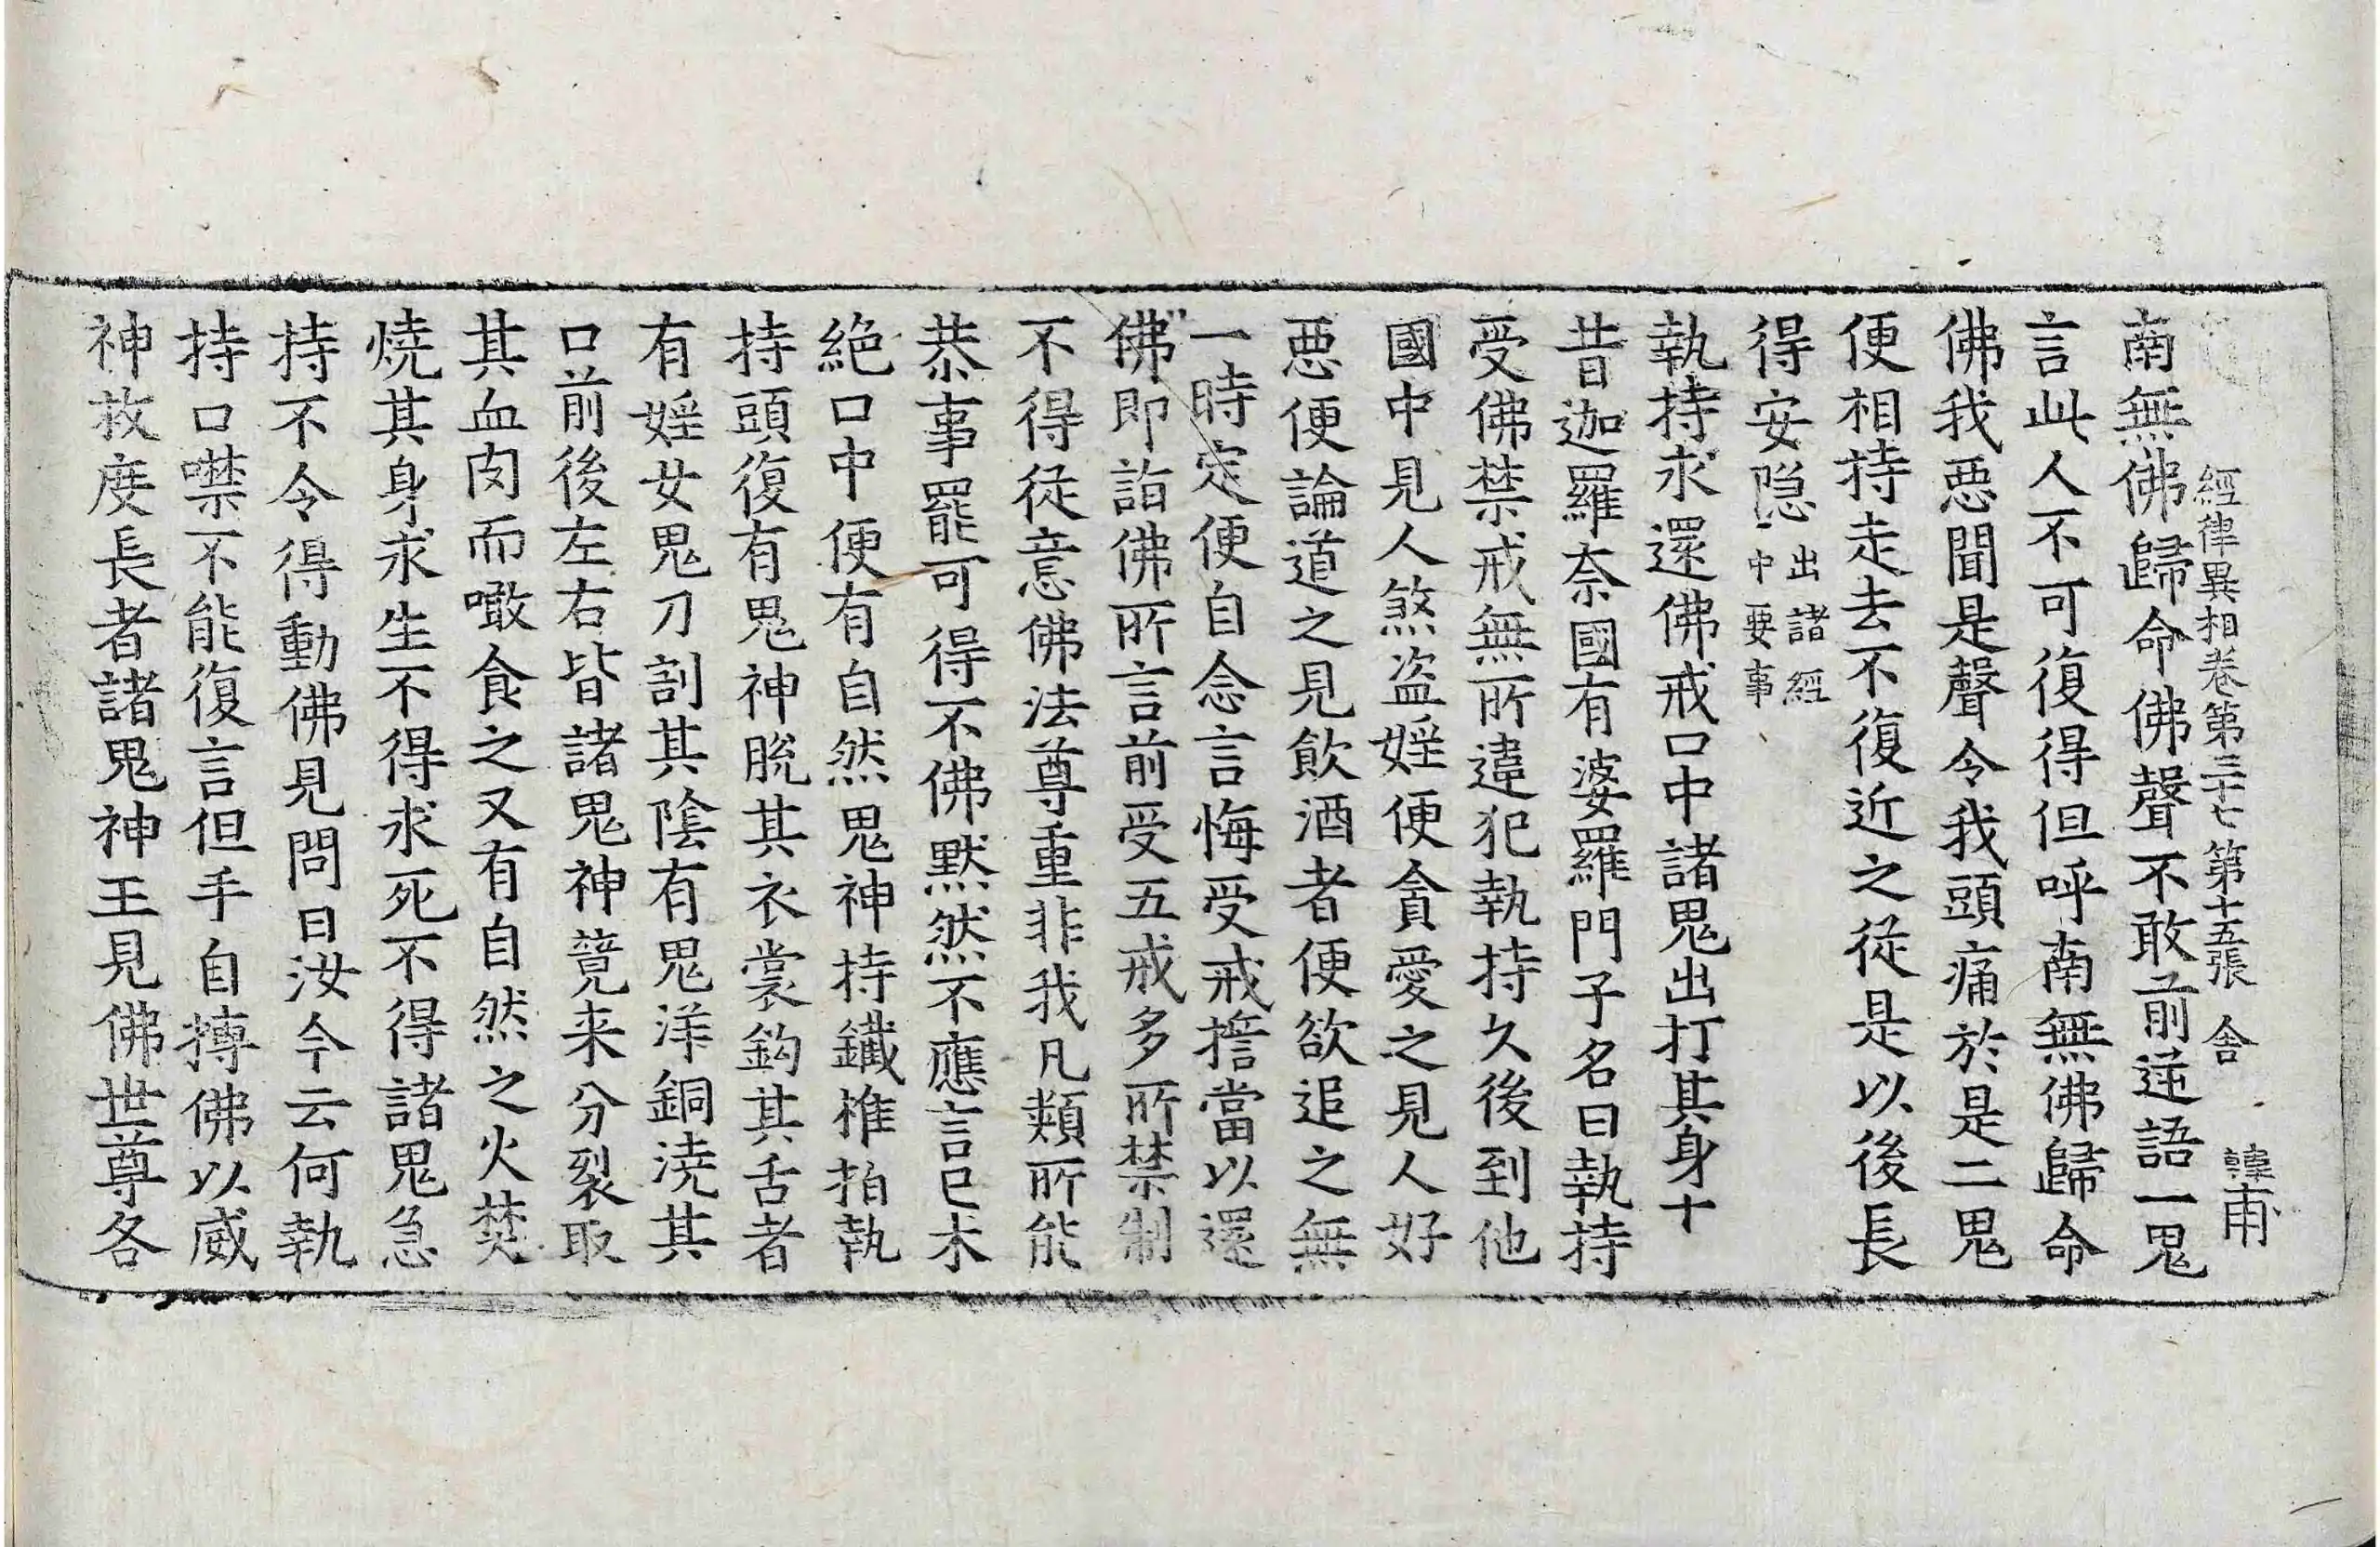 經律異相卷第三十七 第十五張 舍 韓甫
南無佛歸命佛聲不敢前逆語一鬼
言此人不可復得但呼南無佛歸命
佛我惡聞是聲令我頭痛於是二鬼
便相持走去不復近之從是以後長
得安隱出諸經中要事
執持求還佛戒口中諸鬼出打其身十
昔迦羅奈國有婆羅門子名曰執持
受佛禁戒無所違犯執持久後到他
國中見人煞盜婬便貪愛之見人好
惡便論道之見飲酒者便欲追之無
一時定便自念言悔受戒擔當以還
佛即詣佛所言前受五戒多所禁制
不得從意佛法尊重非我凡類所能
恭事罷可得不佛默然不應言已未
絕口中便有自然鬼神持鐵椎拍執
持頭復有鬼神脫其衣裳鈎其舌者
有婬女鬼刀割其陰有鬼洋銅澆其
口前後左右皆諸鬼神競来分裂取
其血肉而噉食之又有自然之火焚
燒其身求生不得求死不得諸鬼急
持不令得動佛見問曰汝今云何執
持口噤不能復言但手自搏佛以威
神救度長者諸鬼神王見佛世尊各